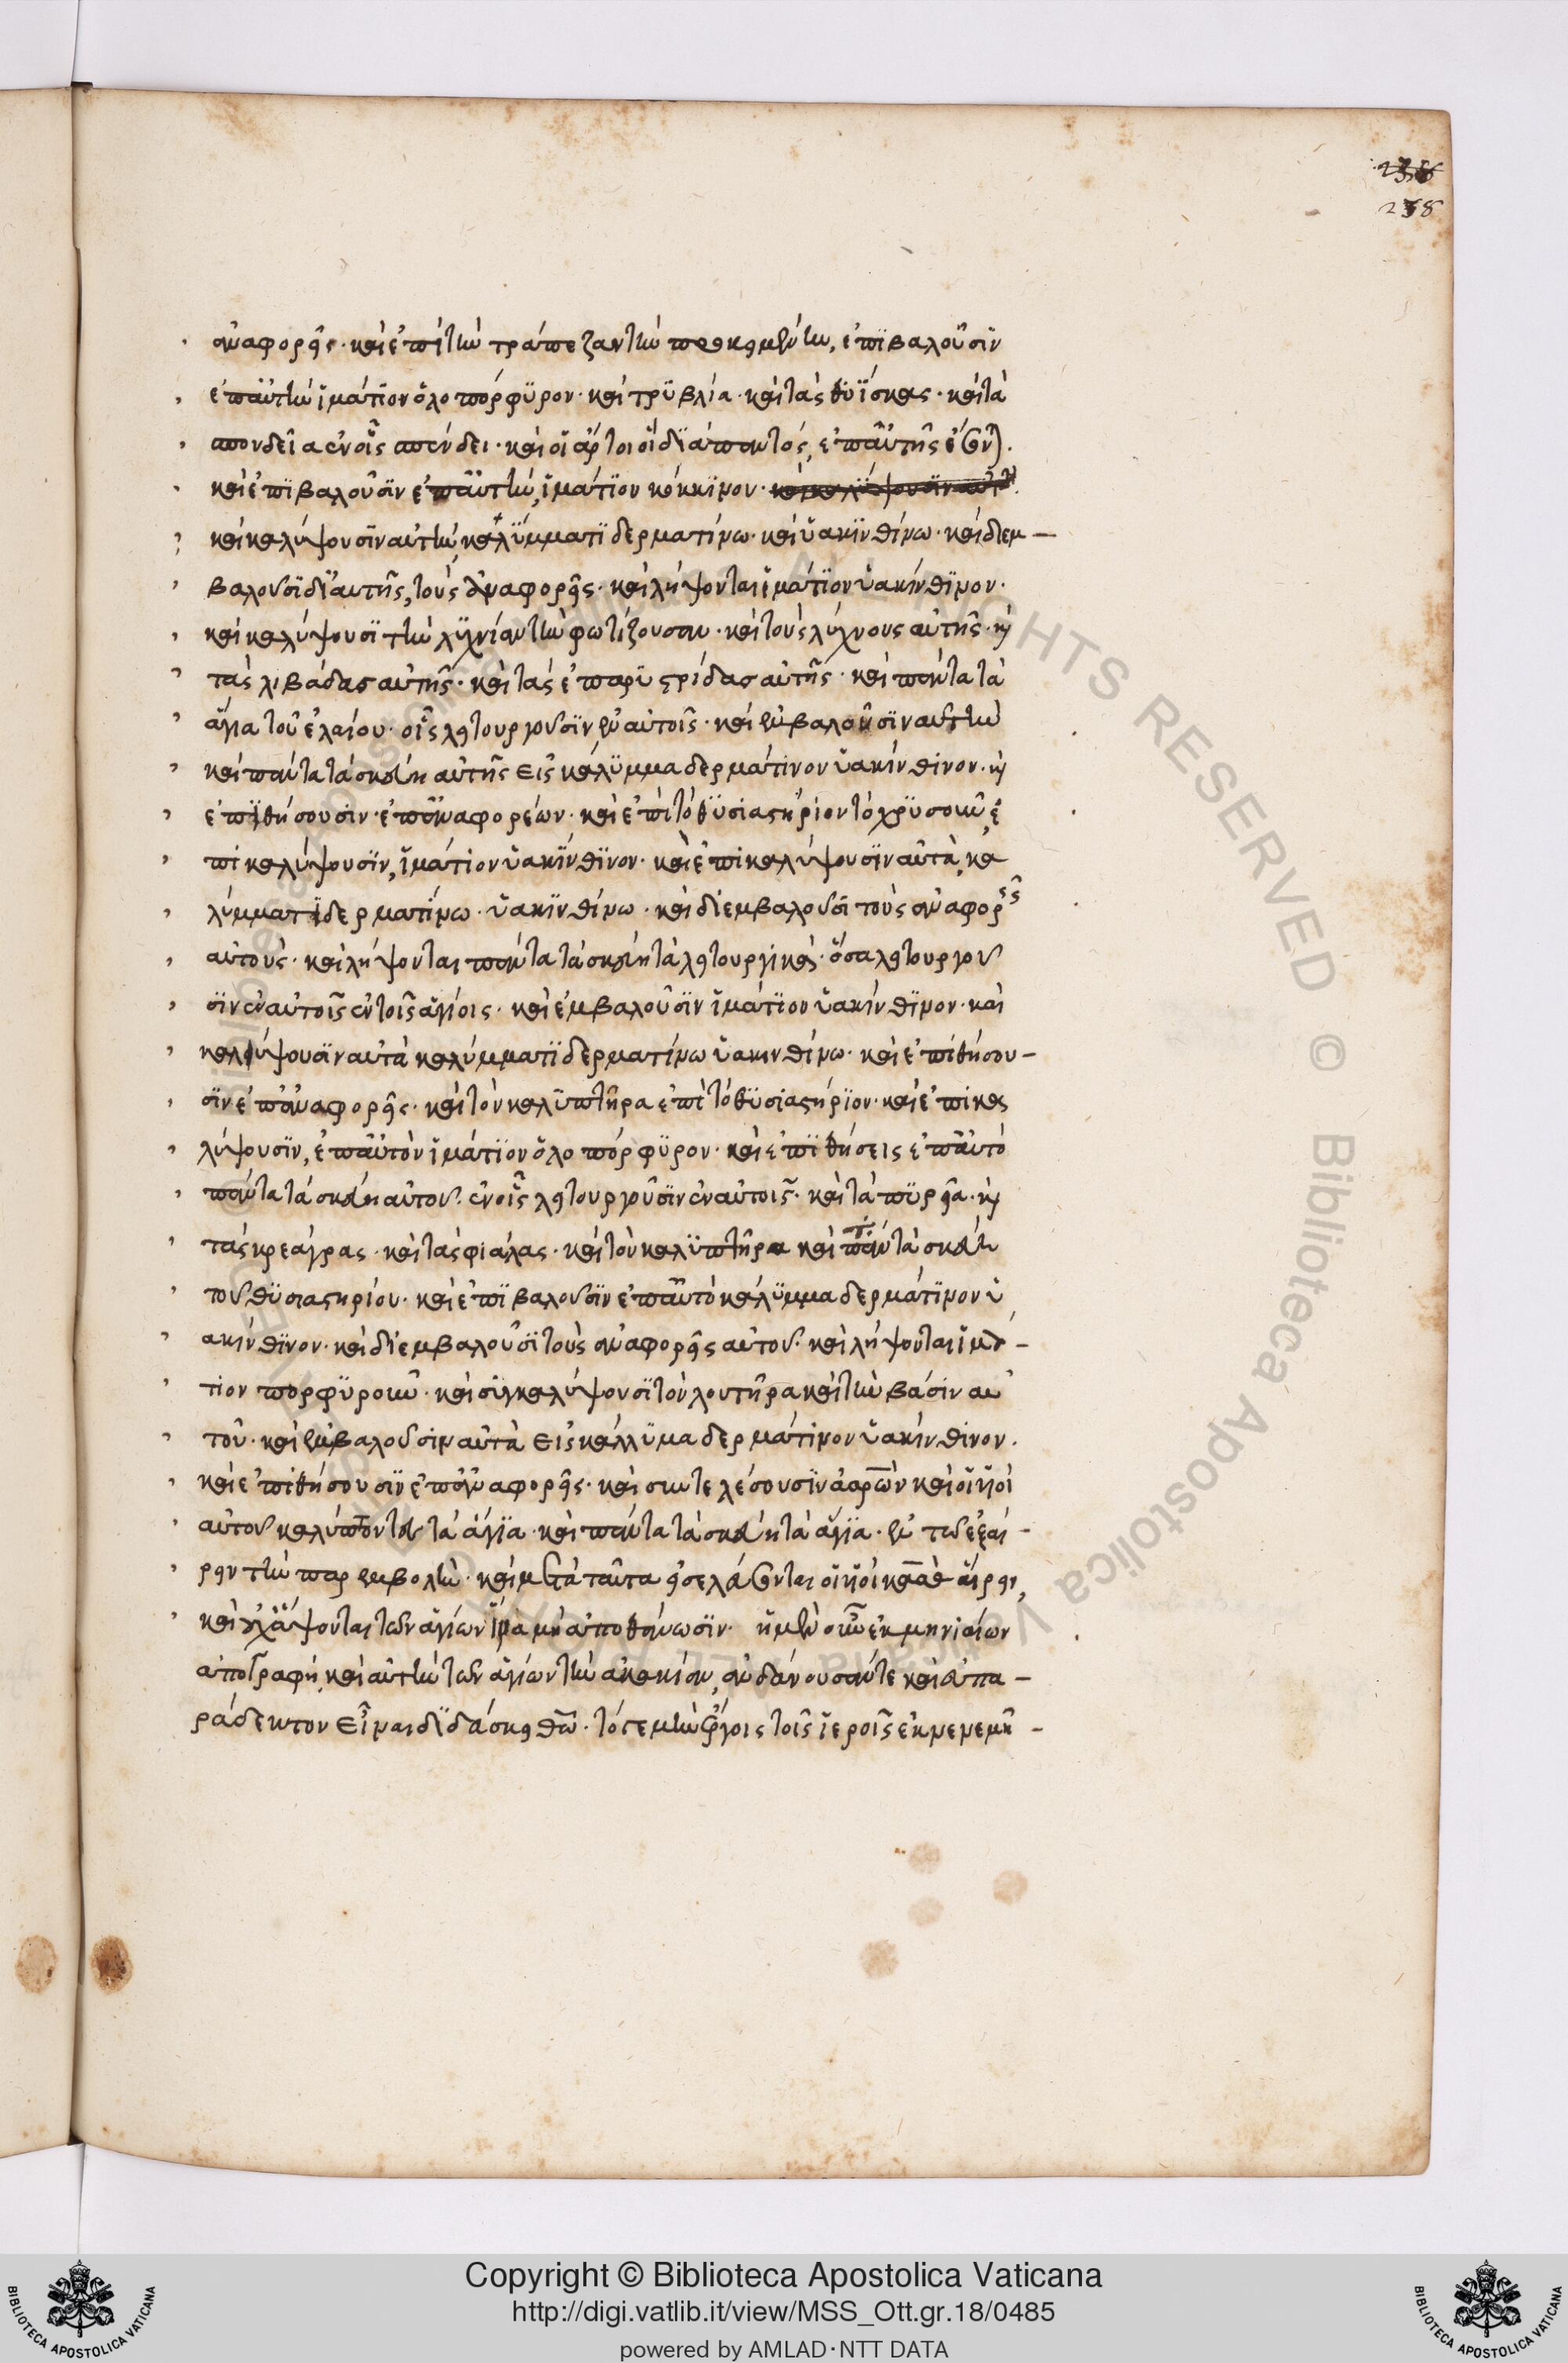 238
ἀναφορεῖς· καὶ ἐπὶ τὴν τράπεζαν τὴν προκειμένην, ἐπιβαλοῦσιν
ἐπ' αὐτὴν ἱμάτιον ὁλοπόρφυρον· καὶ τρυβλία· καὶ τὰς θυΐσκας· καὶ τὰ
σπονδεῖα ἐν οἷς σπένδει· καὶ οἱ ἄρτοι οἱ διαπαντός, ἐπ' αὐτῆς ἔσονται.
καὶ ἐπιβαλοῦσιν ἐπ' αὐτήν, ἱμάτιον κόκκινον· καὶ καλύψουσιν αὐτὴν
καὶ καλύψουσιν αὐτὴν, καλύμματι δερματίνω· καὶ ὑακινθίνω· καὶ διεμ–
βαλοῦσι δι' αὐτῆς, τοὺς ἀναφορεῖς· καὶ λήψονται ἱμάτιον ὑακίνθινον·
καὶ καλύψουσι τὴν λυχνίαν τὴν φωτίζουσαν· καὶ τοὺς λύχνους αὐτῆς· καὶ
τὰς λιβάδας αὐτῆς· καὶ τὰς ἐπαρυστρίδας αὐτῆς· καὶ πάντα τὰ
ἀγία τοῦ ἐλαίου· οἷς λειτουργοῦσιν ἐν αὐτοῖς· καὶ ἐμβαλοῦσιν αὐτὴν
καὶ πάντα τὰ σκεύη αὐτῆς εἰς κάλυμμα δερμάτινον ὑακίνθινον· καὶ
ἐπιθήσουσιν· ἐπ' ἀναφορέων· καὶ ἐπὶ τὸ θυσιαστήριον τὸ χρυσοῦν, ἐ
πικαλύψουσιν, ἱμάτιον ὑακίνθινον· καὶ ἐπικαλύψουσιν αὐτὰ, κα
λύμματι δερματίνω· ὑακινθίνω· καὶ διεμβαλοῦσι τοὺς ἀναφορεῖς
αὐτοὺς· καὶ λήψονται πάντα τὰ σκεύη τὰ λειτουργικὰ· ὅσα λειτουργοῦ
σιν ἐν αὐτοῖς ἐν τοῖς ἁγίοις· καὶ ἐμβαλοῦσιν ἱμάτιον ὑακίνθινον· καὶ
καλύψουσιν αὐτὰ καλύμματι δερματίνω ὑακινθίνω· καὶ ἐπιθήσου–
σιν ἐπ' ἀναφορεῖς· καὶ τὸν καλυπτῆρα ἐπὶ τὸ θυσιαστήριον· καὶ ἐπικα
λύψουσιν, ἐπ' αὐτὸν ἱμάτιον ὁλοπόρφυρον· καὶ ἐπιθήσεις ἐπ' αὐτὸ
πάντα τὰ σκεύη αὐτοῦ· ἐν οἷς λειτουργοῦσιν ἐν αὐτοῖς· καὶ τὰ πυρεῖα· καὶ
τὰς κρεάγρας· καὶ τὰς φιάλας· καὶ τὸν καλυπτῆρα καὶ πάντα τὰ σκεύη
τοῦ θυσιαστηρίου· καὶ ἐπιβαλοῦσιν ἐπ' αὐτὸ κάλυμμα δερμάτινον ὑ
ακίνθινον· καὶ διεμβαλοῦσι τοὺς ἀναφορεῖς αὐτοῦ· καὶ λήψονται ἱμά–
τιον πορφυροῦν· καὶ συγκαλύψουσι τὸν λουτῆρα καὶ τὴν βάσιν αὐ
τοῦ· καὶ ἐμβαλοῦσιν αὐτὰ εἰς κάλλυμα δερμάτινον ὑακίνθινον.
καὶ ἐπιθήσουσιν ἐπ' ἀναφορεῖς· καὶ συντελέσουσιν ἀαρὼν καὶ οἱ υἱοὶ
αὐτοῦ καλύπτοντες τὰ ἅγια· καὶ πάντα τὰ σκεύη τὰ ἅγια· ἐν τῶ ἐξαί–
ρειν τὴν παρεμβολὴν· καὶ μετὰ ταῦτα εἰσελεύσονται οἱ υἱοὶ καὰθ αἴρειν,
καὶ οὐχ ἅψονται τῶν ἁγίων ἵνα μὴ ἀποθάνωσιν· ἡ μὲν οὖν ἐκ μηνιαίων
ἀπογραφὴ, καὶ αὐτὴν τῶν ἁγίων τὴν διακονίαν, ἁνδάνουσάν τε καὶ εὐπα–
ράδεκτον εἶναι διδάσκει θεῶ· τό γε μὴν ἔργοις τοῖς ἱεροῖς ἐκνενεμῆ–
Copyright © Biblioteca Apostolica Vaticana
http://digi.vatlib.it/view/MSS_Ott.gr.18/0485
powered by AMLAD·NTT DATA